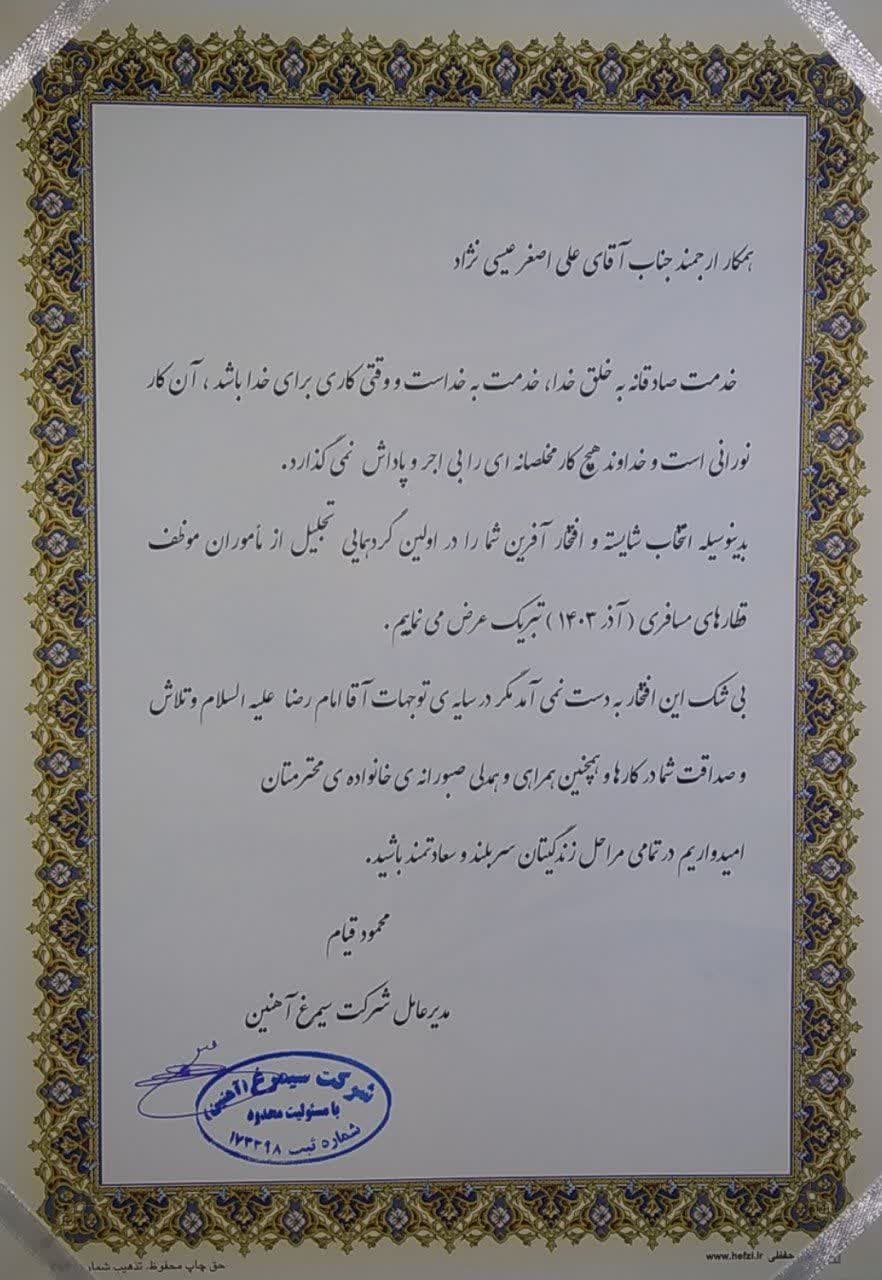 همکار ارجمند جناب آقای علی اصغر عیسی نژاد
خدمت صادقانه به خلق خدا، خدمت به خداست و وقتی کاری برای خدا باشد، آن کار
نورانی است و خداوند هیچ کار مخلصانه ای را بی اجر و پاداش نمی گذارد.
بدینوسیله انتخاب شایسته و افتخار آفرین شما را در اولین گردهمایی تجلیل از مأموران موظف
قطارهای مسافری (آذر ۱۴۰۳) تبریک عرض می نماییم.
بی شک این افتخار به دست نمی آمد مگر در سایه ی توجهات آقا امام رضا علیه السلام و تلاش
و صداقت شما در کارها و همچنین همراهی و همدلی صبورانه ی خانواده ی محترمتان
امیدواریم در تمامی مراحل زندگیتان سربلند و سعادتمند باشید.
محمود قیام
مدیرعامل شرکت سیمرغ آهنین
شرکت سیمرغ (آهنین)
با مسئولیت محدود
شماره ثبت ۱۷۳۳۹۸
حفظی www.hefzi.ir
حق چاپ محفوظ. تذهیب شمار